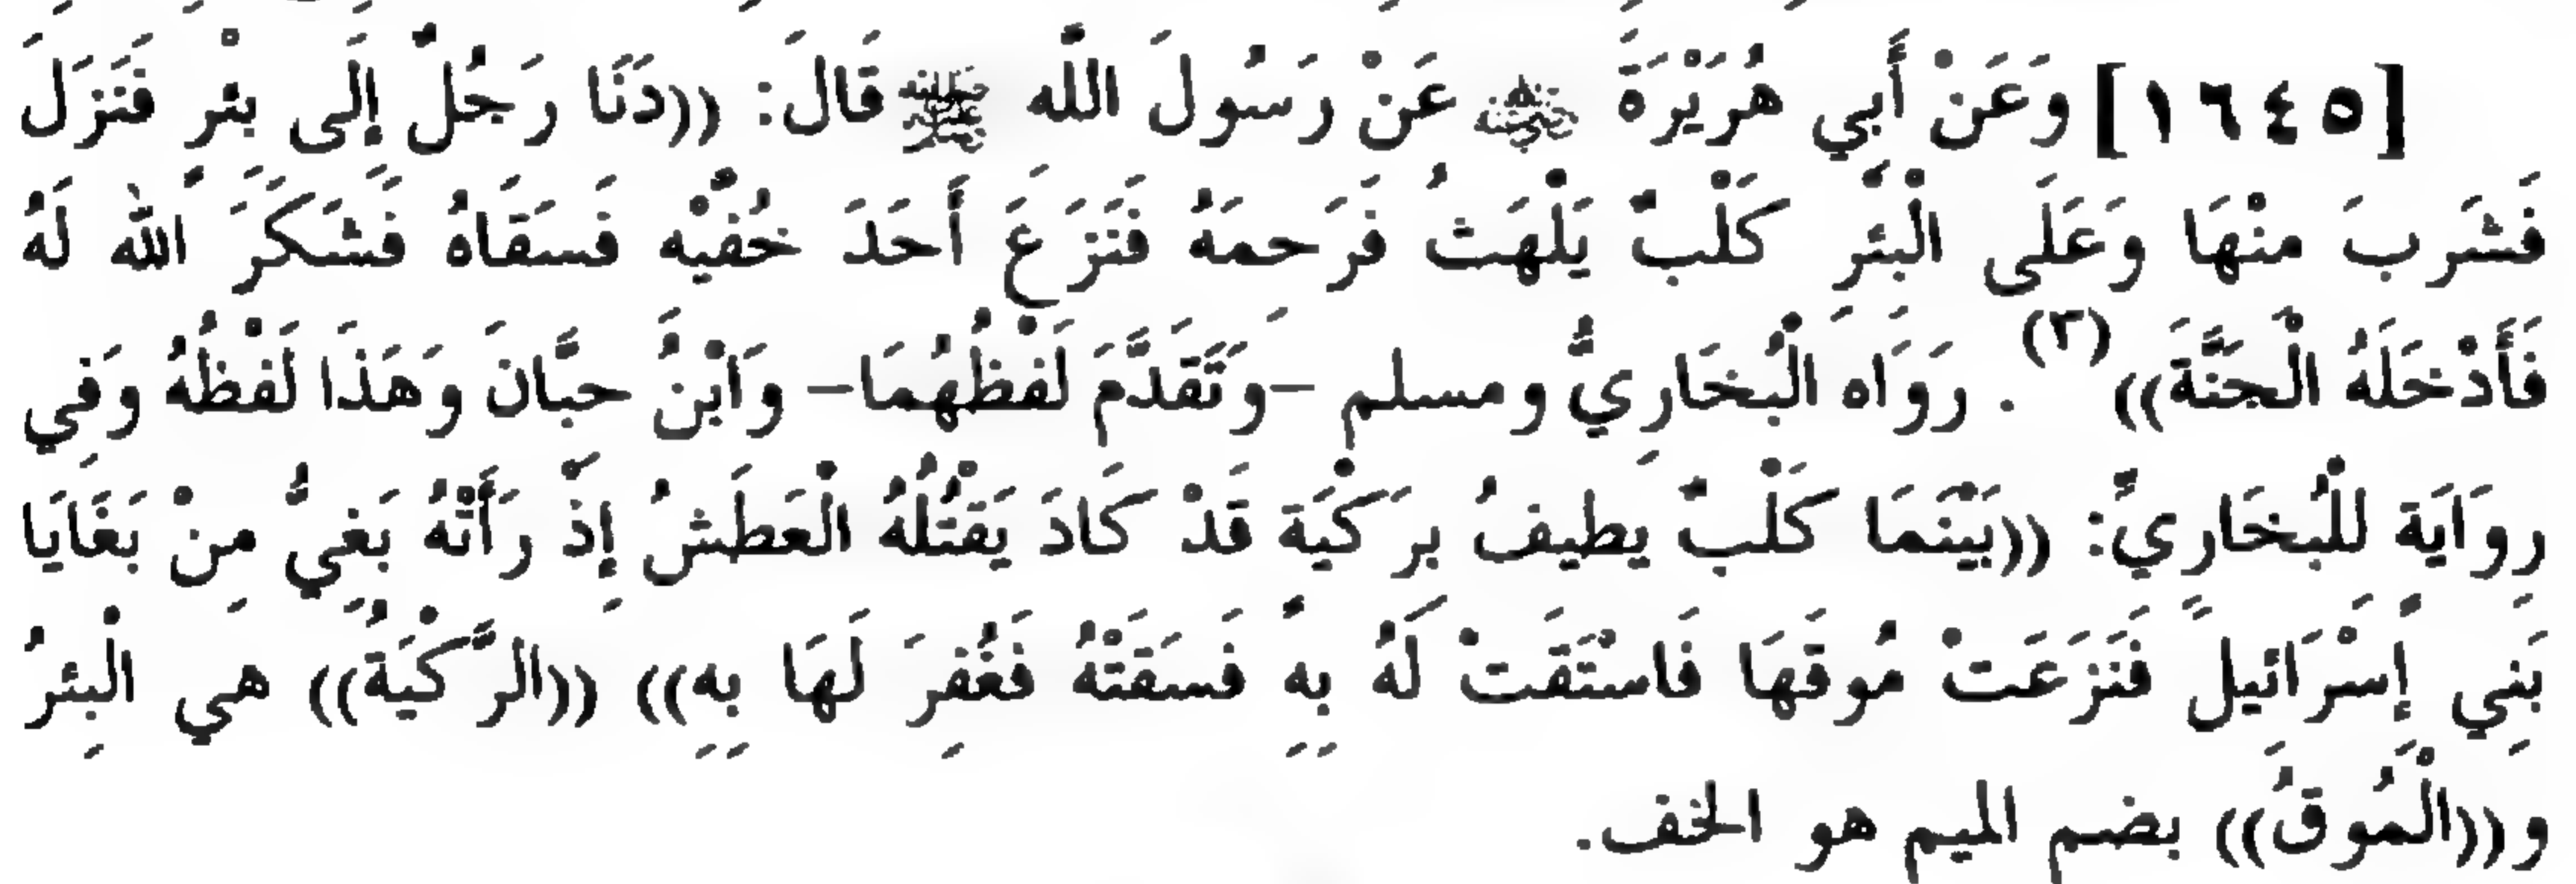 [١٦٤٥] وَعَنْ أَبِي هُرَيْرَةَ رضي الله عنه عَنْ رَسُولِ اللَّهِ ﷺ قَالَ: ((دَنَا رَجُلٌ إِلَى بِئْرٍ فَنَزَلَ
فَشَرِبَ مِنْهَا وَعَلَى الْبِئْرِ كَلْبٌ يَلْهَثُ فَرَحِمَهُ فَنَزَعَ أَحَدَ خُفَّيْهِ فَسَقَاهُ فَشَكَرَ اللَّهُ لَهُ
فَأَدْخَلَهُ الْجَنَّةَ))(٣). رَوَاه الْبُخَارِيُّ ومسلم -وَتَقَدَّمَ لَفْظُهُمَا- وَابْنُ حِبَّانَ وَهَذَا لَفْظُهُ وَفِي
رِوَايَةٍ لِلْبُخَارِيِّ: ((بَيْنَمَا كَلْبٌ يُطِيفُ بِرَكْيَةٍ قَدْ كَادَ يَقْتُلُهُ الْعَطَشُ إِذْ رَأَتْهُ بَغِيٌّ مِنْ بَغَايَا
بَنِي إِسْرَائِيلَ فَنَزَعَتْ مُوقَهَا فَاسْتَقَتْ لَهُ بِهِ فَسَقَتْهُ فَغُفِرَ لَهَا بِهِ)) ((الرَّكْيَةُ)) هي الْبِئْرُ
و((الْمُوقُ)) بضم الميم هو الخف.